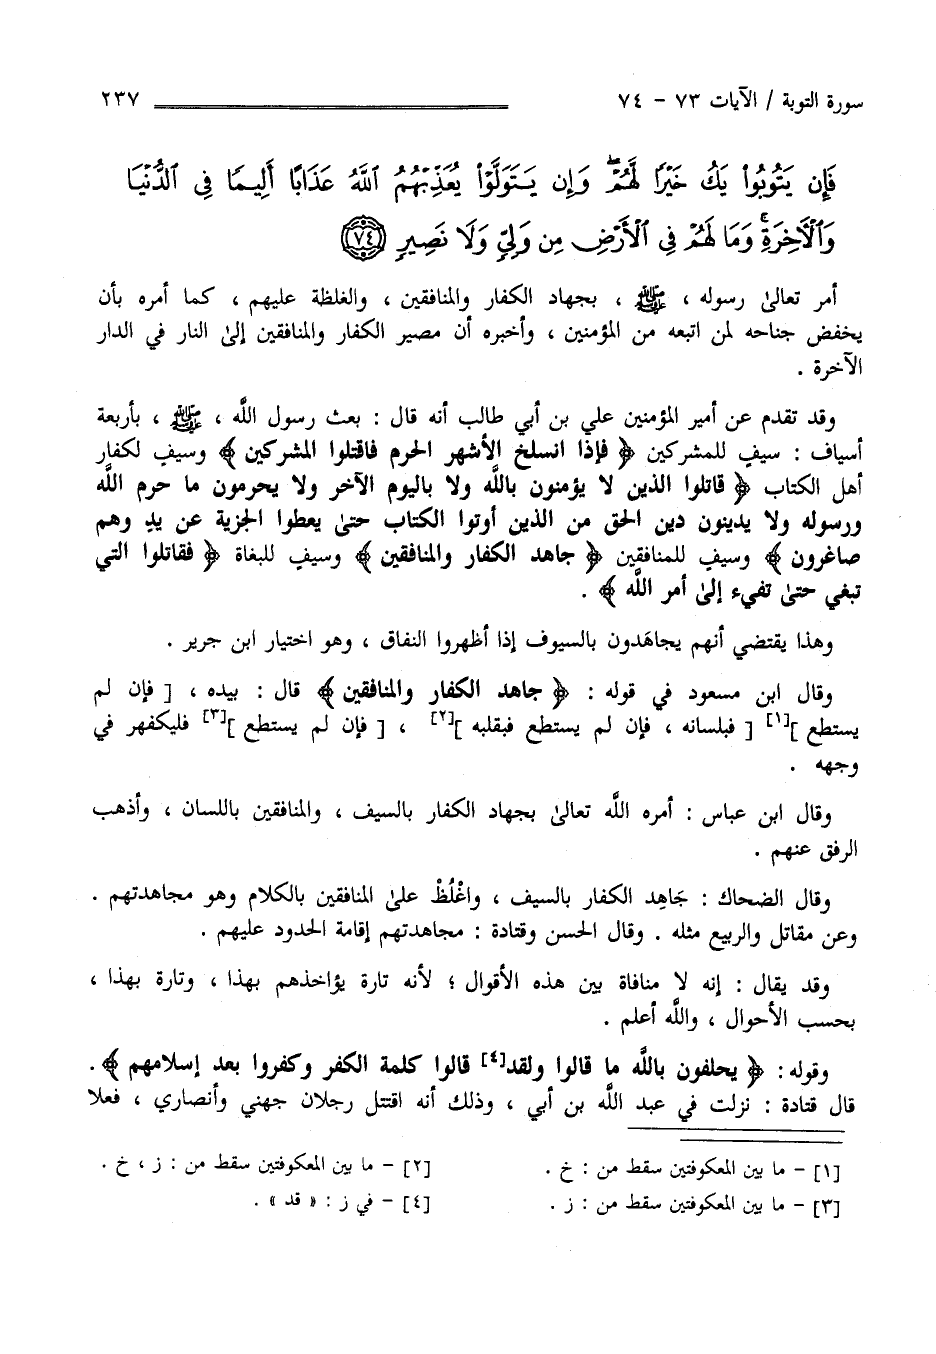 سورة التوبة / الآيات ٧٣ - ٧٤ ٢٣٧
فَإِن يَتُوبُوا۟ يَكُ خَيْرًا لَّهُمْ ۖ وَإِن يَتَوَلَّوْا۟ يُعَذِّبْهُمُ ٱللَّهُ عَذَابًا أَلِيمًا فِى ٱلدُّنْيَا
وَٱلْآخِرَةِ ۚ وَمَا لَهُمْ فِى ٱلْأَرْضِ مِن وَلِىٍّ وَلَا نَصِيرٍ ٧٤
أمر تعالىٰ رسوله ، ﷺ ، بجهاد الكفار والمنافقين ، والغلظة عليهم ، كما أمره بأن
يخفض جناحه لمن اتبعه من المؤمنين ، وأخبره أن مصير الكفار والمنافقين إلىٰ النار في الدار
الآخرة .
وقد تقدم عن أمير المؤمنين علي بن أبي طالب أنه قال : بعث رسول اللَّه ، ﷺ ، بأربعة
أسياف : سيفٍ للمشركين ﴿ فإذا انسلخ الأشهر الحرم فاقتلوا المشركين ﴾ وسيفٍ لكفار
أهل الكتاب ﴿ قاتلوا الذين لا يؤمنون باللَّه ولا باليوم الآخر ولا يحرمون ما حرم اللَّه
ورسوله ولا يدينون دين الحق من الذين أوتوا الكتاب حتىٰ يعطوا الجزية عن يدٍ وهم
صاغرون ﴾ وسيفٍ للمنافقين ﴿ جاهد الكفار والمنافقين ﴾ وسيفٍ للبغاة ﴿ فقاتلوا التي
تبغي حتىٰ تفيء إلىٰ أمر اللَّه ﴾ .
وهذا يقتضي أنهم يجاهَدون بالسيوف إذا أظهروا النفاق ، وهو اختيار ابن جرير .
وقال ابن مسعود في قوله : ﴿ جاهد الكفار والمنافقين ﴾ قال : بيده ، [ فإن لم
يستطع ][١] [ فبلسانه ، فإن لم يستطع فبقلبه ][٢] ، [ فإن لم يستطع ][٣] فليكفهر في
وجهه .
وقال ابن عباس : أمره اللَّه تعالىٰ بجهاد الكفار بالسيف ، والمنافقين باللسان ، وأذهب
الرفق عنهم .
وقال الضحاك : جَاهِد الكفار بالسيف ، واغْلُظْ علىٰ المنافقين بالكلام وهو مجاهدتهم .
وعن مقاتل والربيع مثله . وقال الحسن وقتادة : مجاهدتهم إقامة الحدود عليهم .
وقد يقال : إنه لا منافاة بين هذه الأقوال ؛ لأنه تارة يؤاخذهم بهذا ، وتارة بهذا ،
بحسب الأحوال ، واللَّه أعلم .
وقوله : ﴿ يحلفون باللَّه ما قالوا ولقد[٤] قالوا كلمة الكفر وكفروا بعد إسلامهم ﴾ .
قال قتادة : نزلت في عبد اللَّه بن أبي ، وذلك أنه اقتتل رجلان جهني وأنصاري ، فعلا
[١] - ما بين المعكوفتين سقط من : خ . [٢] - ما بين المعكوفتين سقط من : ز ، خ .
[٣] - ما بين المعكوفتين سقط من : ز . [٤] - في ز : « قد » .